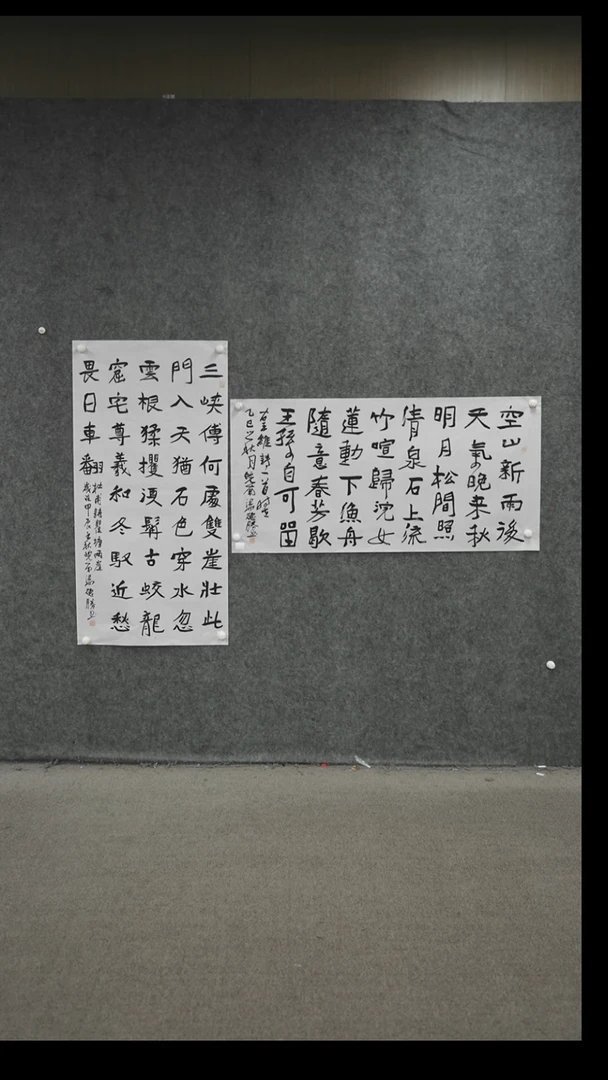 三峽傳何處雙崖壯此
門入天猶石色穿水忽
雲根猱攫須髯古蛟龍
窟宅尊羲和冬馭近愁
畏日車翻
杜甫詩瞿塘兩崖
歲在甲辰之秋
空山新雨後
天氣晚来秋
明月松間照
清泉石上流
竹喧歸浣女
蓮動下漁舟
隨意春芳歇
王孫自可畱
右王維詩一首
乙巳之秋月